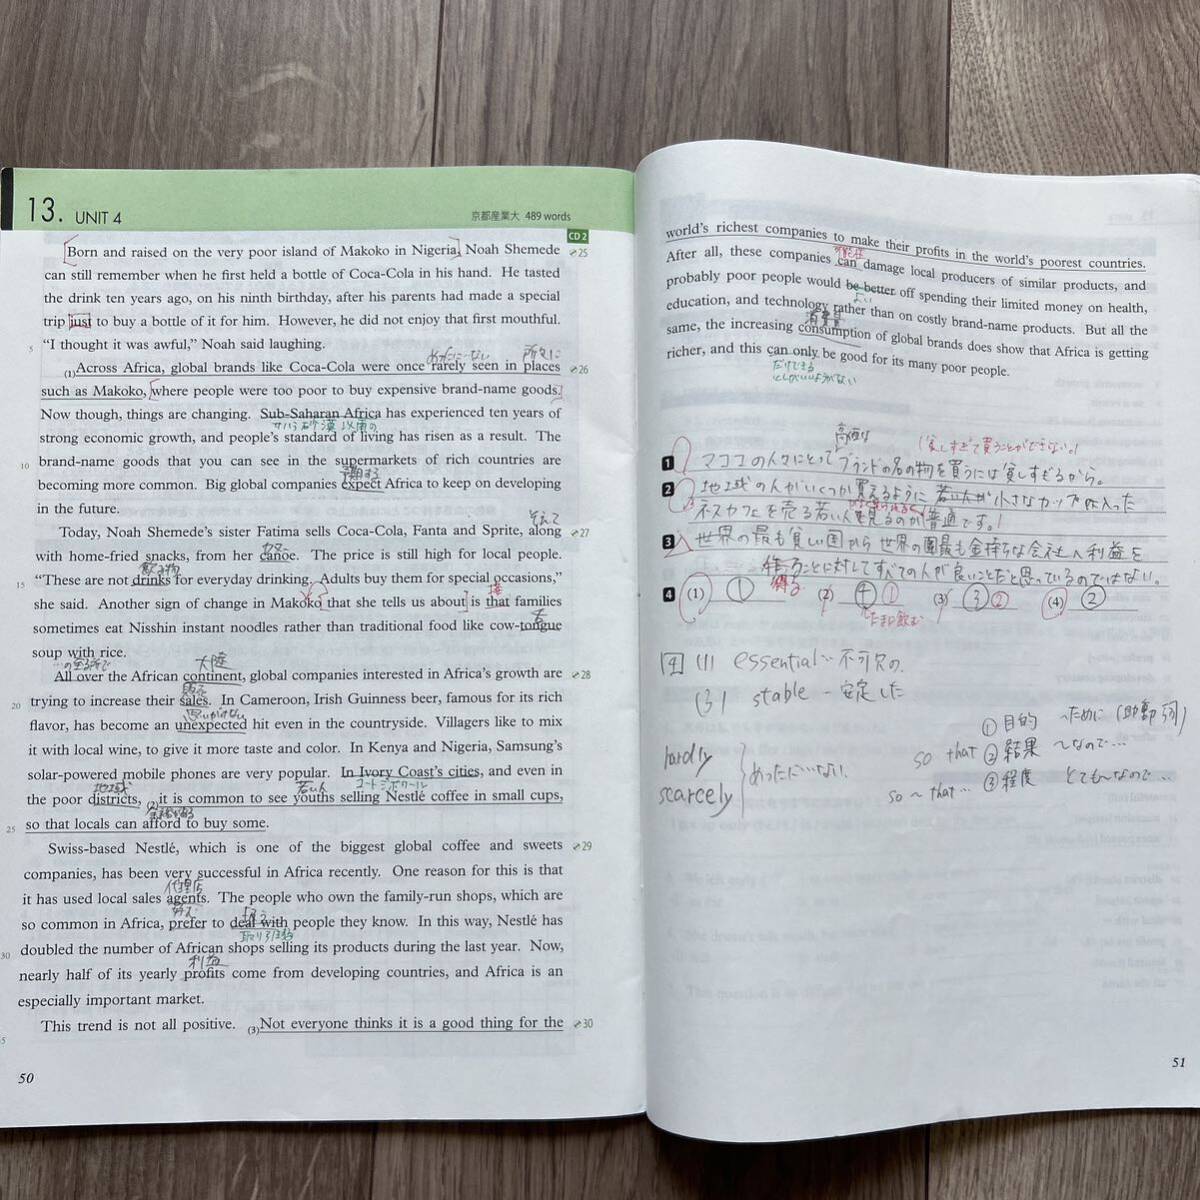 13. UNIT 4
京都産業大 489 words
CD 2
Born and raised on the very poor island of Makoko in Nigeria, Noah Shemede
25
can still remember when he first held a bottle of Coca-Cola in his hand. He tasted
the drink ten years ago, on his ninth birthday, after his parents had made a special
trip just to buy a bottle of it for him. However, he did not enjoy that first mouthful.
5 “I thought it was awful,” Noah said laughing.
めったに…ない
所々に
(1)Across Africa, global brands like Coca-Cola were once rarely seen in places
26
such as Makoko, where people were too poor to buy expensive brand-name goods.
Now though, things are changing. Sub-Saharan Africa has experienced ten years of
サハラ砂漠以南の
strong economic growth, and people's standard of living has risen as a result. The
10 brand-name goods that you can see in the supermarkets of rich countries are
予期する
becoming more common. Big global companies expect Africa to keep on developing
in the future.
Today, Noah Shemede's sister Fatima sells Coca-Cola, Fanta and Sprite, along
27
with home-fried snacks, from her canoe. The price is still high for local people.
飲み物
15 “These are not drinks for everyday drinking. Adults buy them for special occasions,”
she said. Another sign of change in Makoko that she tells us about is that families
sometimes eat Nisshin instant noodles rather than traditional food like cow-tongue
soup with rice.
大陸
All over the African continent, global companies interested in Africa's growth are
28
20 trying to increase their sales. In Cameroon, Irish Guinness beer, famous for its rich
思いがけない
flavor, has become an unexpected hit even in the countryside. Villagers like to mix
it with local wine, to give it more taste and color. In Kenya and Nigeria, Samsung's
solar-powered mobile phones are very popular. In Ivory Coast's cities, and even in
地域
若い人
コートジボワール
the poor districts, (2)it is common to see youths selling Nestlé coffee in small cups,
25 so that locals can afford to buy some.
Swiss-based Nestlé, which is one of the biggest global coffee and sweets
29
companies, has been very successful in Africa recently. One reason for this is that
代理店
it has used local sales agents. The people who own the family-run shops, which are
so common in Africa, prefer to deal with people they know. In this way, Nestlé has
取り引きする
30 doubled the number of African shops selling its products during the last year. Now,
利益
nearly half of its yearly profits come from developing countries, and Africa is an
especially important market.
This trend is not all positive. (3)Not everyone thinks it is a good thing for the
30
50
world's richest companies to make their profits in the world's poorest countries.
After all, these companies can damage local producers of similar products, and
probably poor people would be better off spending their limited money on health,
よい
education, and technology rather than on costly brand-name products. But all the
消費量
same, the increasing consumption of global brands does show that Africa is getting
richer, and this can only be good for its many poor people.
だけできる
高価な
(貧しすぎて買うことができない。)
1 マココの人々にとってブランドの名の物を買うには貧しすぎるから。
2 地域の人がいくつか買えるように若い人が小さなカップに入った
ネスカフェを売る若い人を見るのが普通です。
3 世界の最も貧しい国から世界の最も金持ちな会社へ利益を
得る
作ることに対してすべての人が良いことだと思っているのではない。
4 (1) ① (2) ④ ① (3) ③ ② (4) ②
たまに飲む
4 (1) essential … 不可欠の.
(3) stable – 安定した
hardly
scarcely
めったに…ない.
so that
① 目的 ~ために (助動詞)
② 結果 ~なので…
so ~ that …
③ 程度 とても~なので…
51